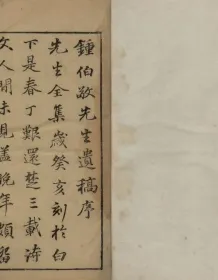 鍾伯敬先生遺稿序
先生全集歲癸亥刻於白
下是春丁艱還楚三載詩
文人間未見蓋晚年頗留